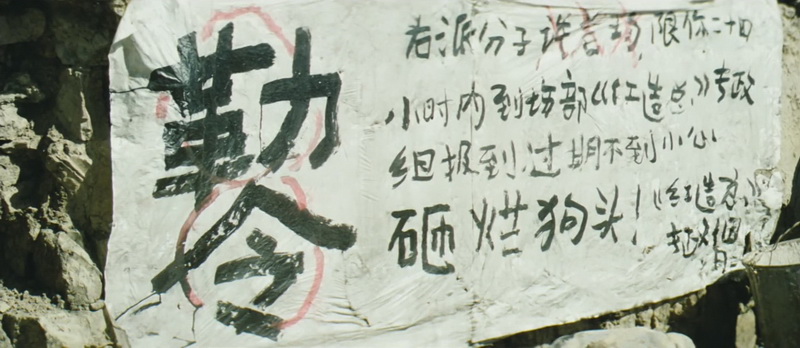 勒令
右派分子许灵均限你二十四
小时内到场部《红造总》专政
组报到过期不到小心
砸烂狗头!
《红造总》
专政组